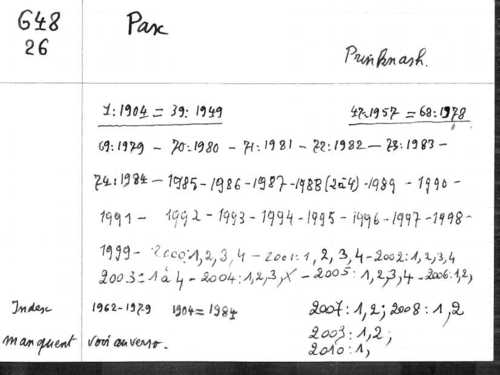 648 Pax
26
Prinknash.
1:1904 = 39:1949 47:1957 = 68:1978
69:1979 - 70:1980 - 71:1981 - 72:1982 - 73:1983 -
74:1984 - 1985 - 1986 - 1987 - 1988 (2à4) - 1989 - 1990 -
1991 - 1992 - 1993 - 1994 - 1995 - 1996 - 1997 - 1998 -
1999 - 2000:1,2,3,4 - 2001:1,2,3,4 - 2002:1,2,3,4
2003:1 à 4 - 2004:1,2,3,X - 2005:1,2,3,4 - 2006:1,2,
Index 1962-1979 1904=1984 2007:1,2; 2008:1,2
manquent voir au verso. 2003:1,2;
2010:1,